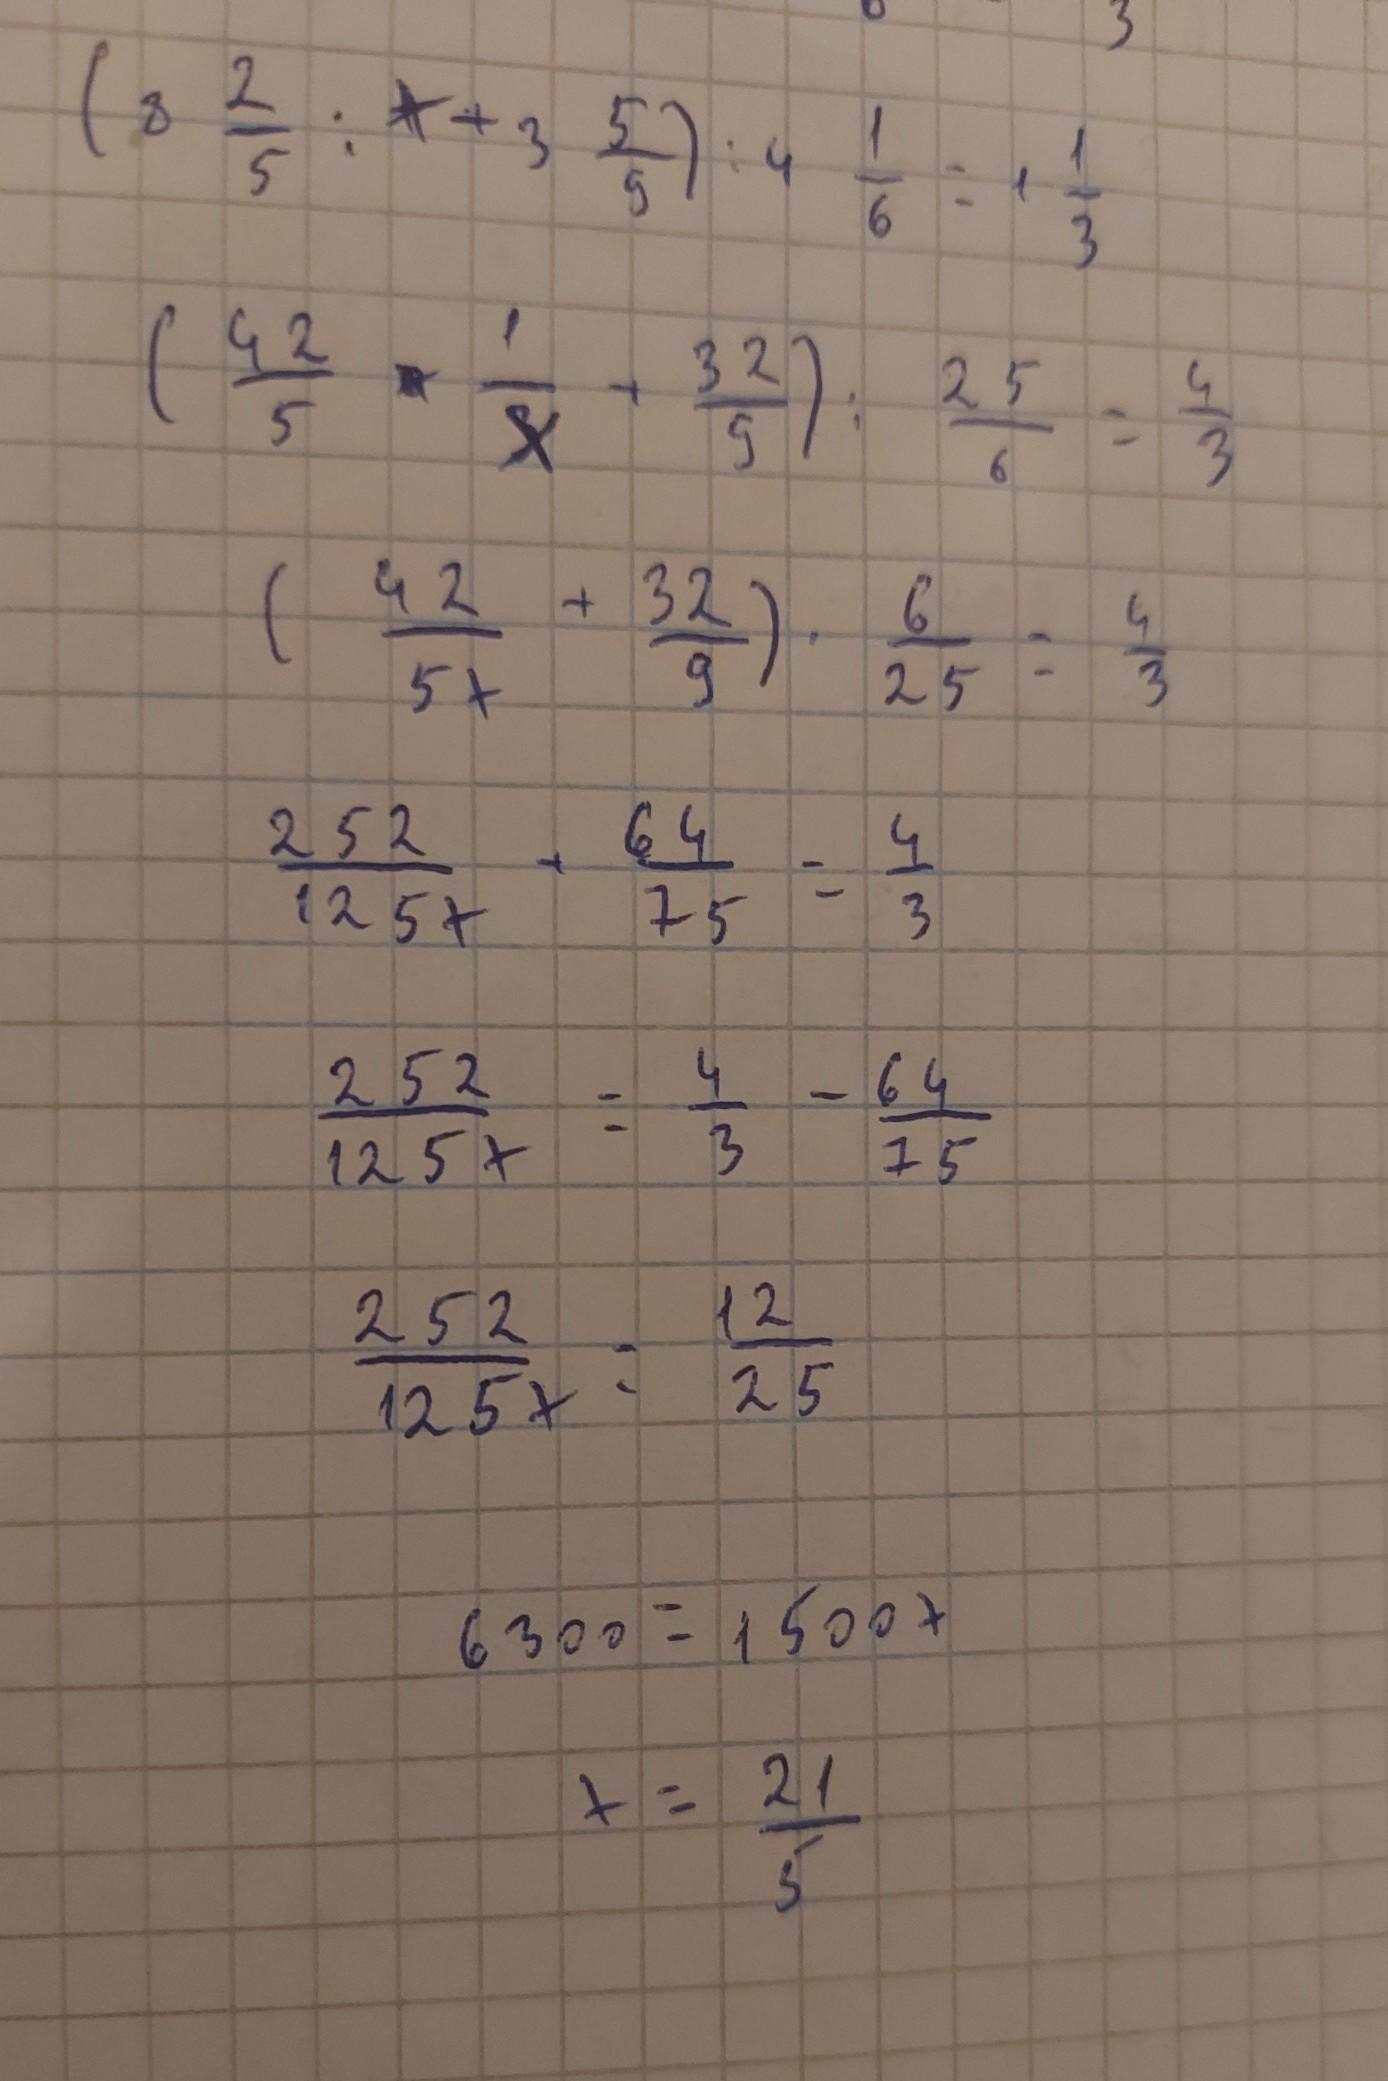 3
(8 2/5 : x + 3 5/9) : 4 1/6 = 1 1/3
(42/5 · 1/x + 32/9) : 25/6 = 4/3
(42/5x + 32/9) · 6/25 = 4/3
252/125x + 64/75 = 4/3
252/125x = 4/3 - 64/75
252/125x = 12/25
6300 = 1500x
x = 21/5